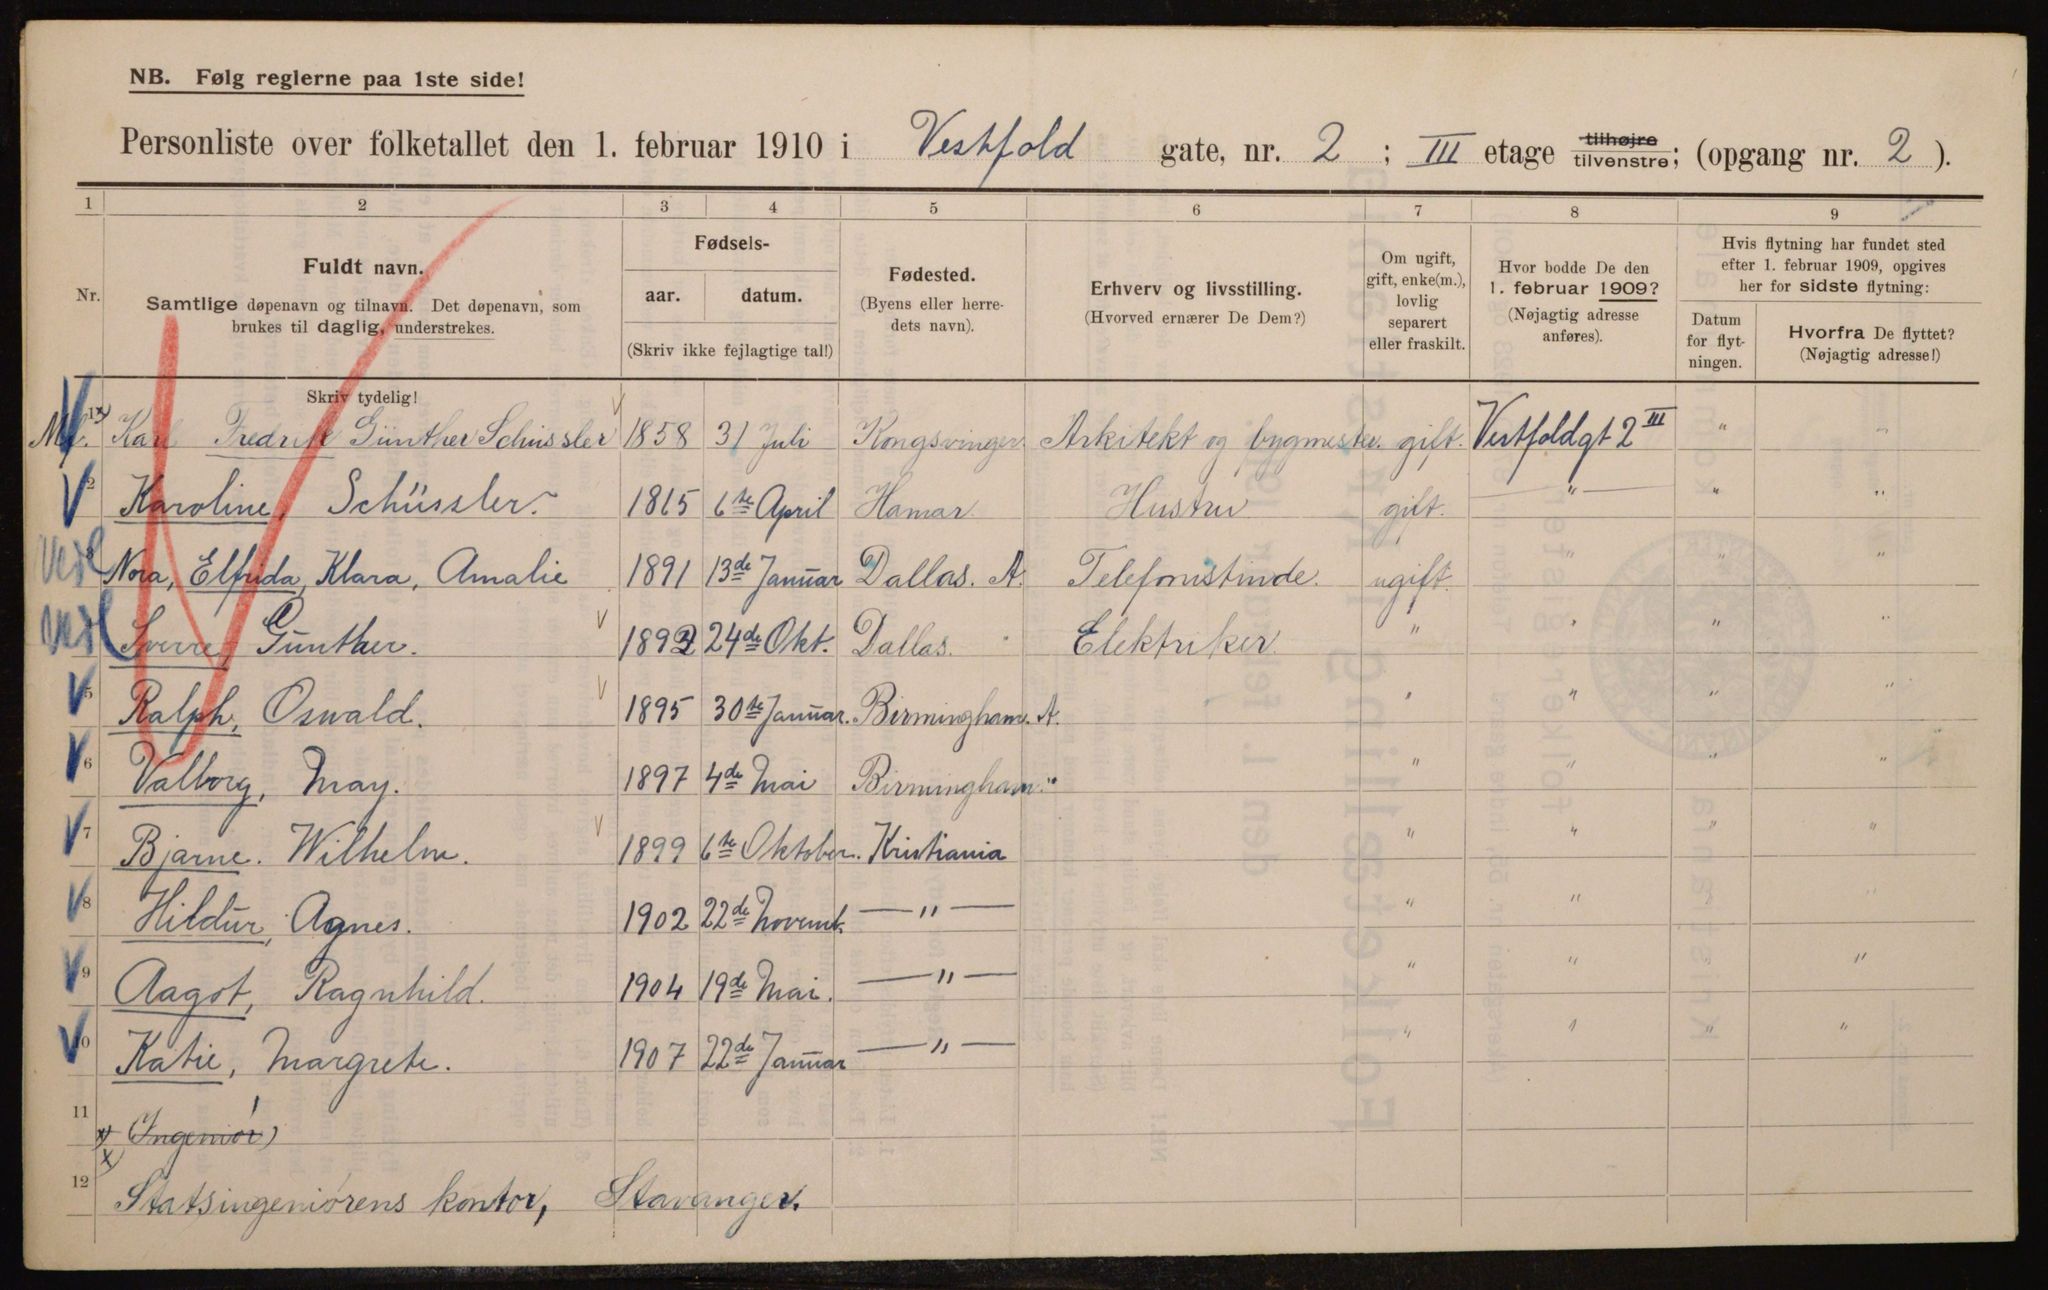 NB. Følg reglerne paa 1ste side!
Personliste over folketallet den 1. februar 1910 i Vestfold gate, nr. 2 ; III etage tilhøjre tilvenstre; (opgang nr. 2 ).
1 2 3 4 5 6 7 8 9
Nr.
Fuldt navn.
Samtlige døpenavn og tilnavn. Det døpenavn, som
brukes til daglig, understrekes.
Skriv tydelig!
Fødsels-
aar. datum.
(Skriv ikke fejlagtige tal!)
Fødested.
(Byens eller herre-
dets navn).
Erhverv og livsstilling.
(Hvorved ernærer De Dem?)
Om ugift,
gift, enke(m.),
lovlig
separert
eller fraskilt.
Hvor bodde De den
1. februar 1909?
(Nøjagtig adresse
anføres).
Hvis flytning har fundet sted
efter 1. februar 1909, opgives
her for sidste flytning:
Datum
for flyt-
ningen.
Hvorfra De flyttet?
(Nøjagtig adresse!)
1 x) Karl Fredrik Günther Schüssler 1858 31 Juli Kongsvinger Arkitekt og bygmester. gift. Vestfoldgt 2 III " "
2 Karoline, Schüssler. 1865 6te April Hamar Hustru gift. " " "
3 Nora, Elfrida, Klara, Amalie 1891 13de Januar Dallas. A. Telefonistinde. ugift. " " "
Sverre, Günther. 1892 24de Okt. Dallas. Elektriker. " " " "
5 Ralph, Oswald. 1895 30te Januar. Birmingham. A. " " " "
6 Valborg, May. 1897 4de Mai Birmingham " " " " "
7 Bjarne. Wilhelm. 1899 6te Oktober. Kristiania " " " "
8 Hildur, Agnes. 1902 22de Novemb. — " — " " " "
9 Aagot, Ragnhild. 1904 19de Mai. — " — " " "
10 Katie, Margrete. 1907 22de Januar — " — " " " "
11 x) (Ingeniør)
x)
12 Statsingeniørens kontor, Stavanger.